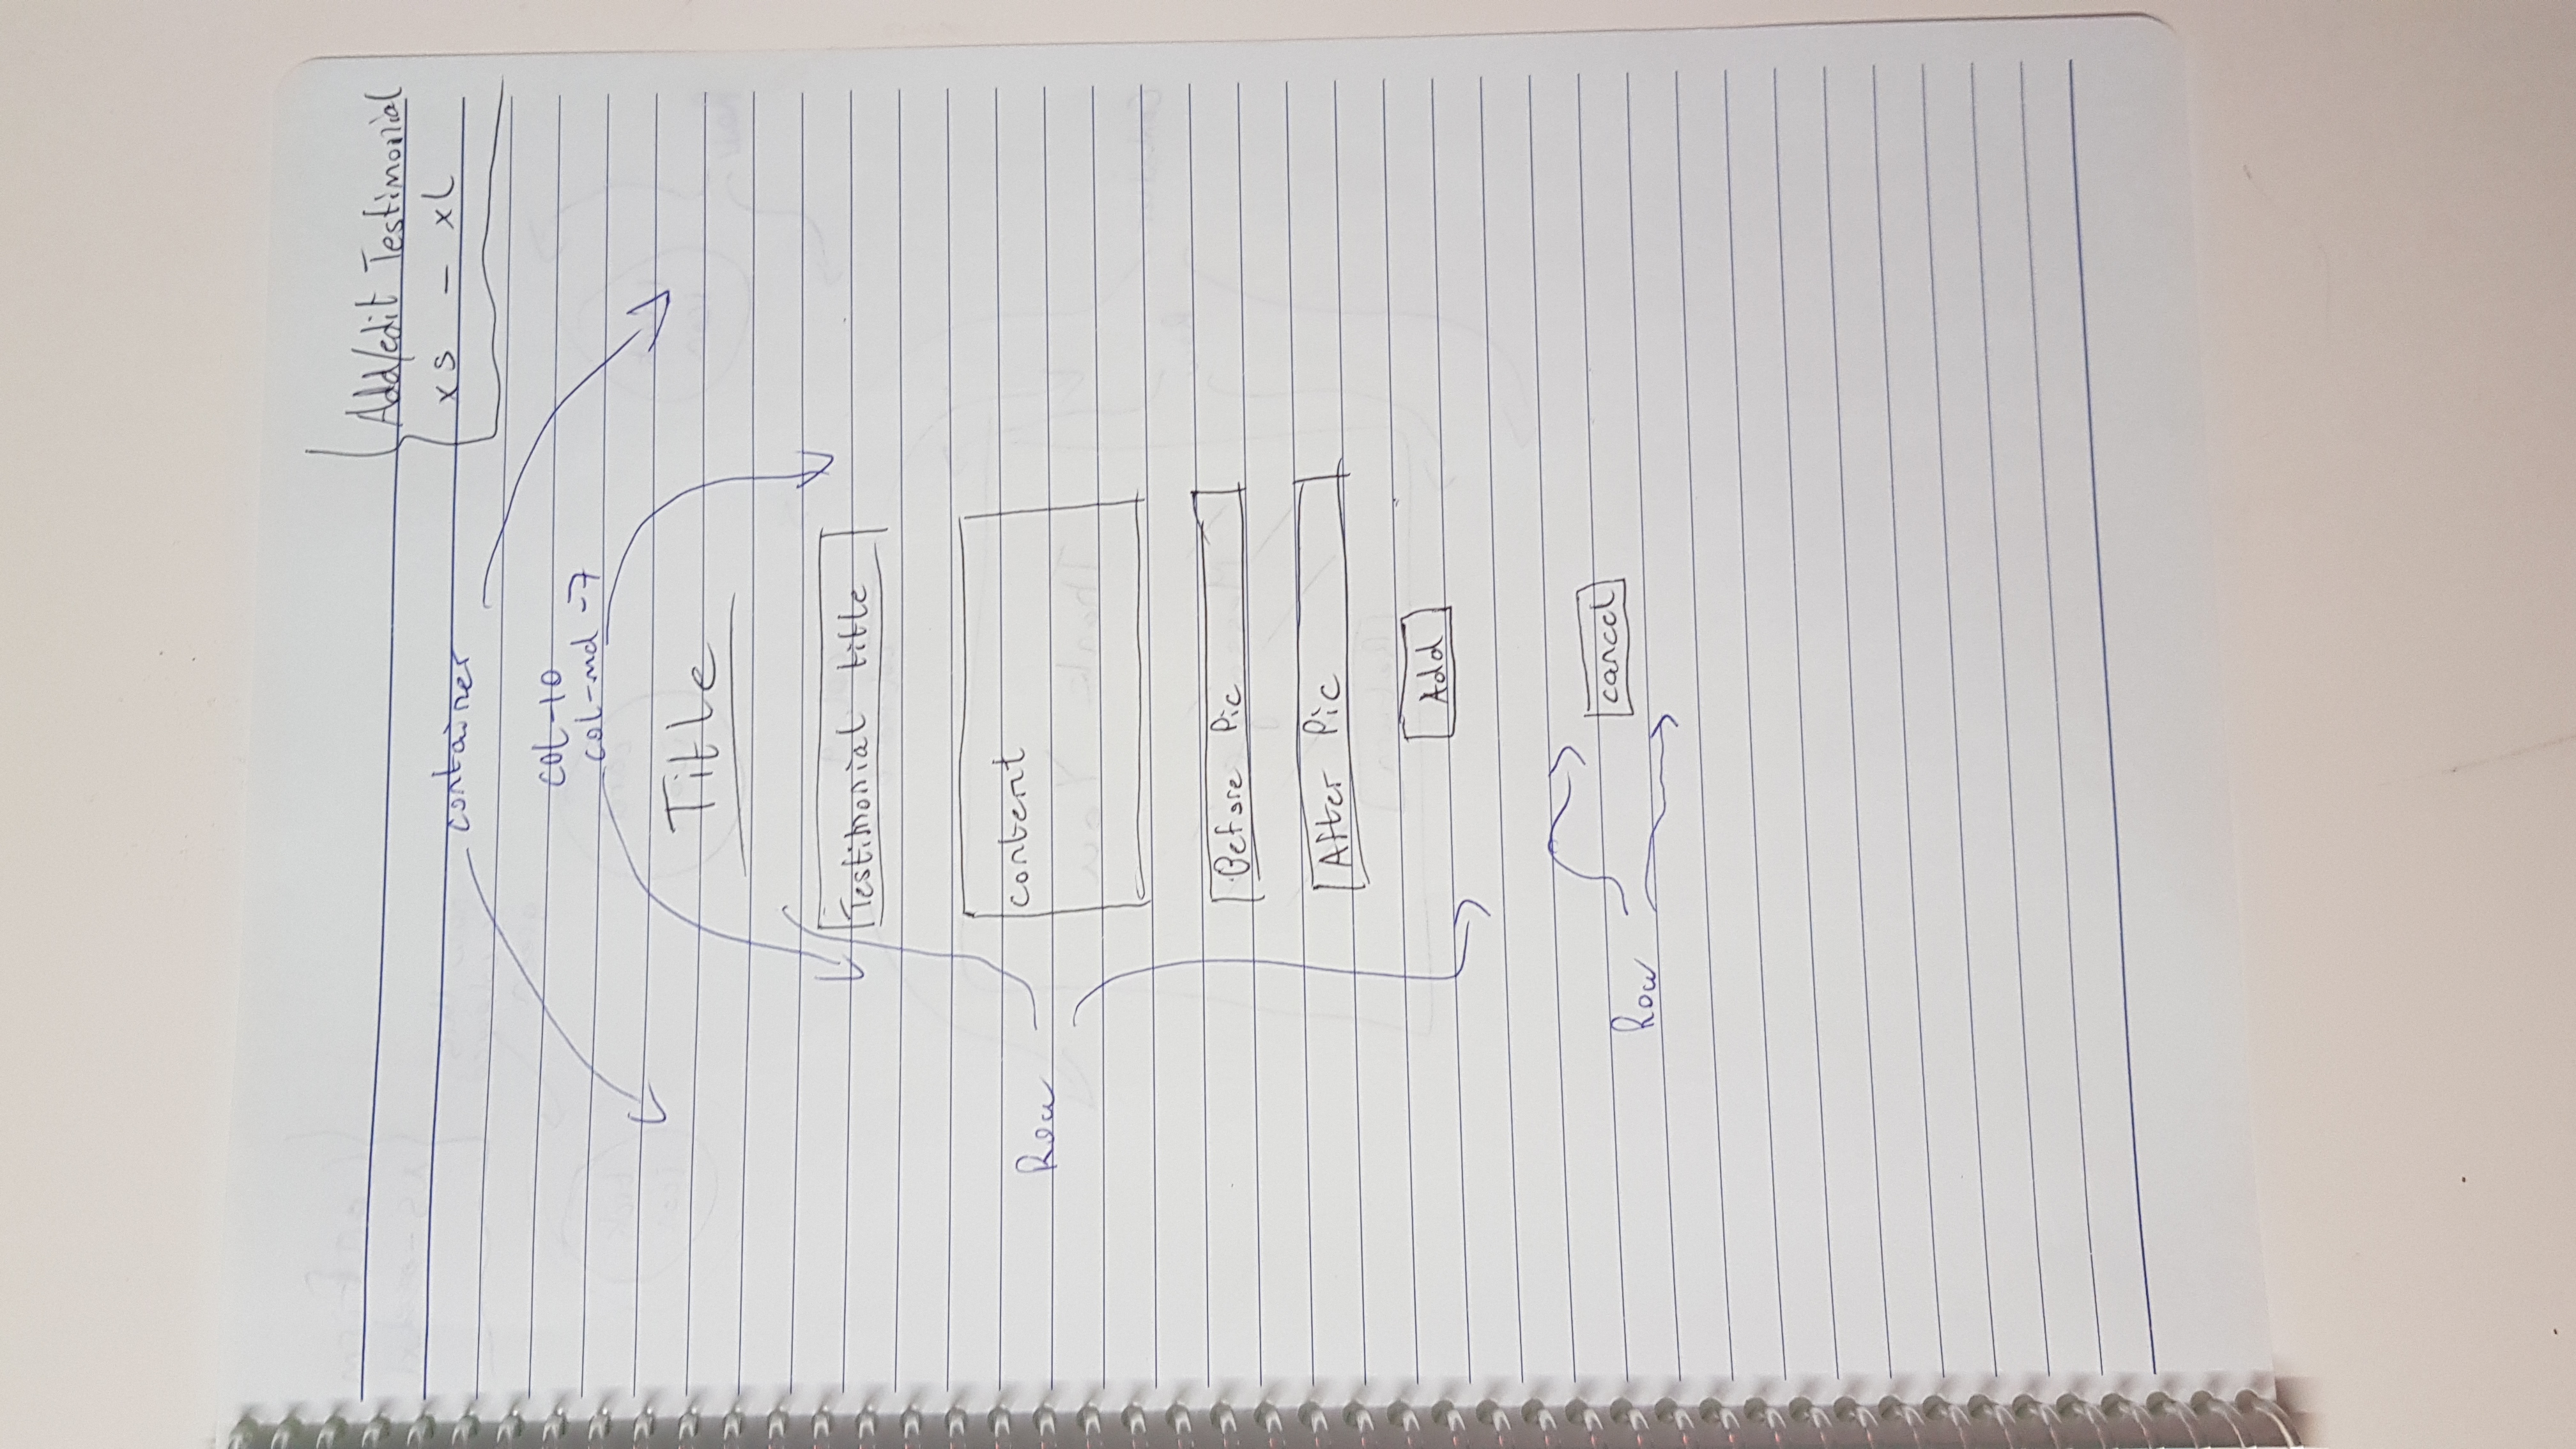 Add/edit Testimonial
xs - xl
container
col-10
col-md-7
Title
Testimonial title
content
Row
Before Pic
After Pic
Add
cancel
Row